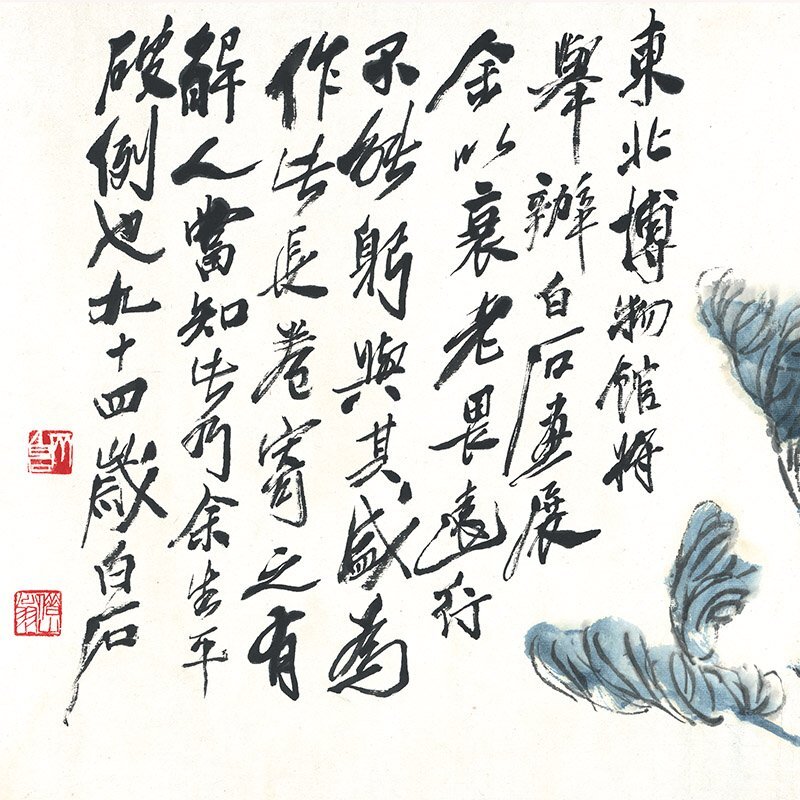 東北博物館将
舉辦白石畫展
余以衰老畏遠行
不能躬與其盛為
作此長卷寄之有
解人當知此乃余生平
破例也九十四歲白石